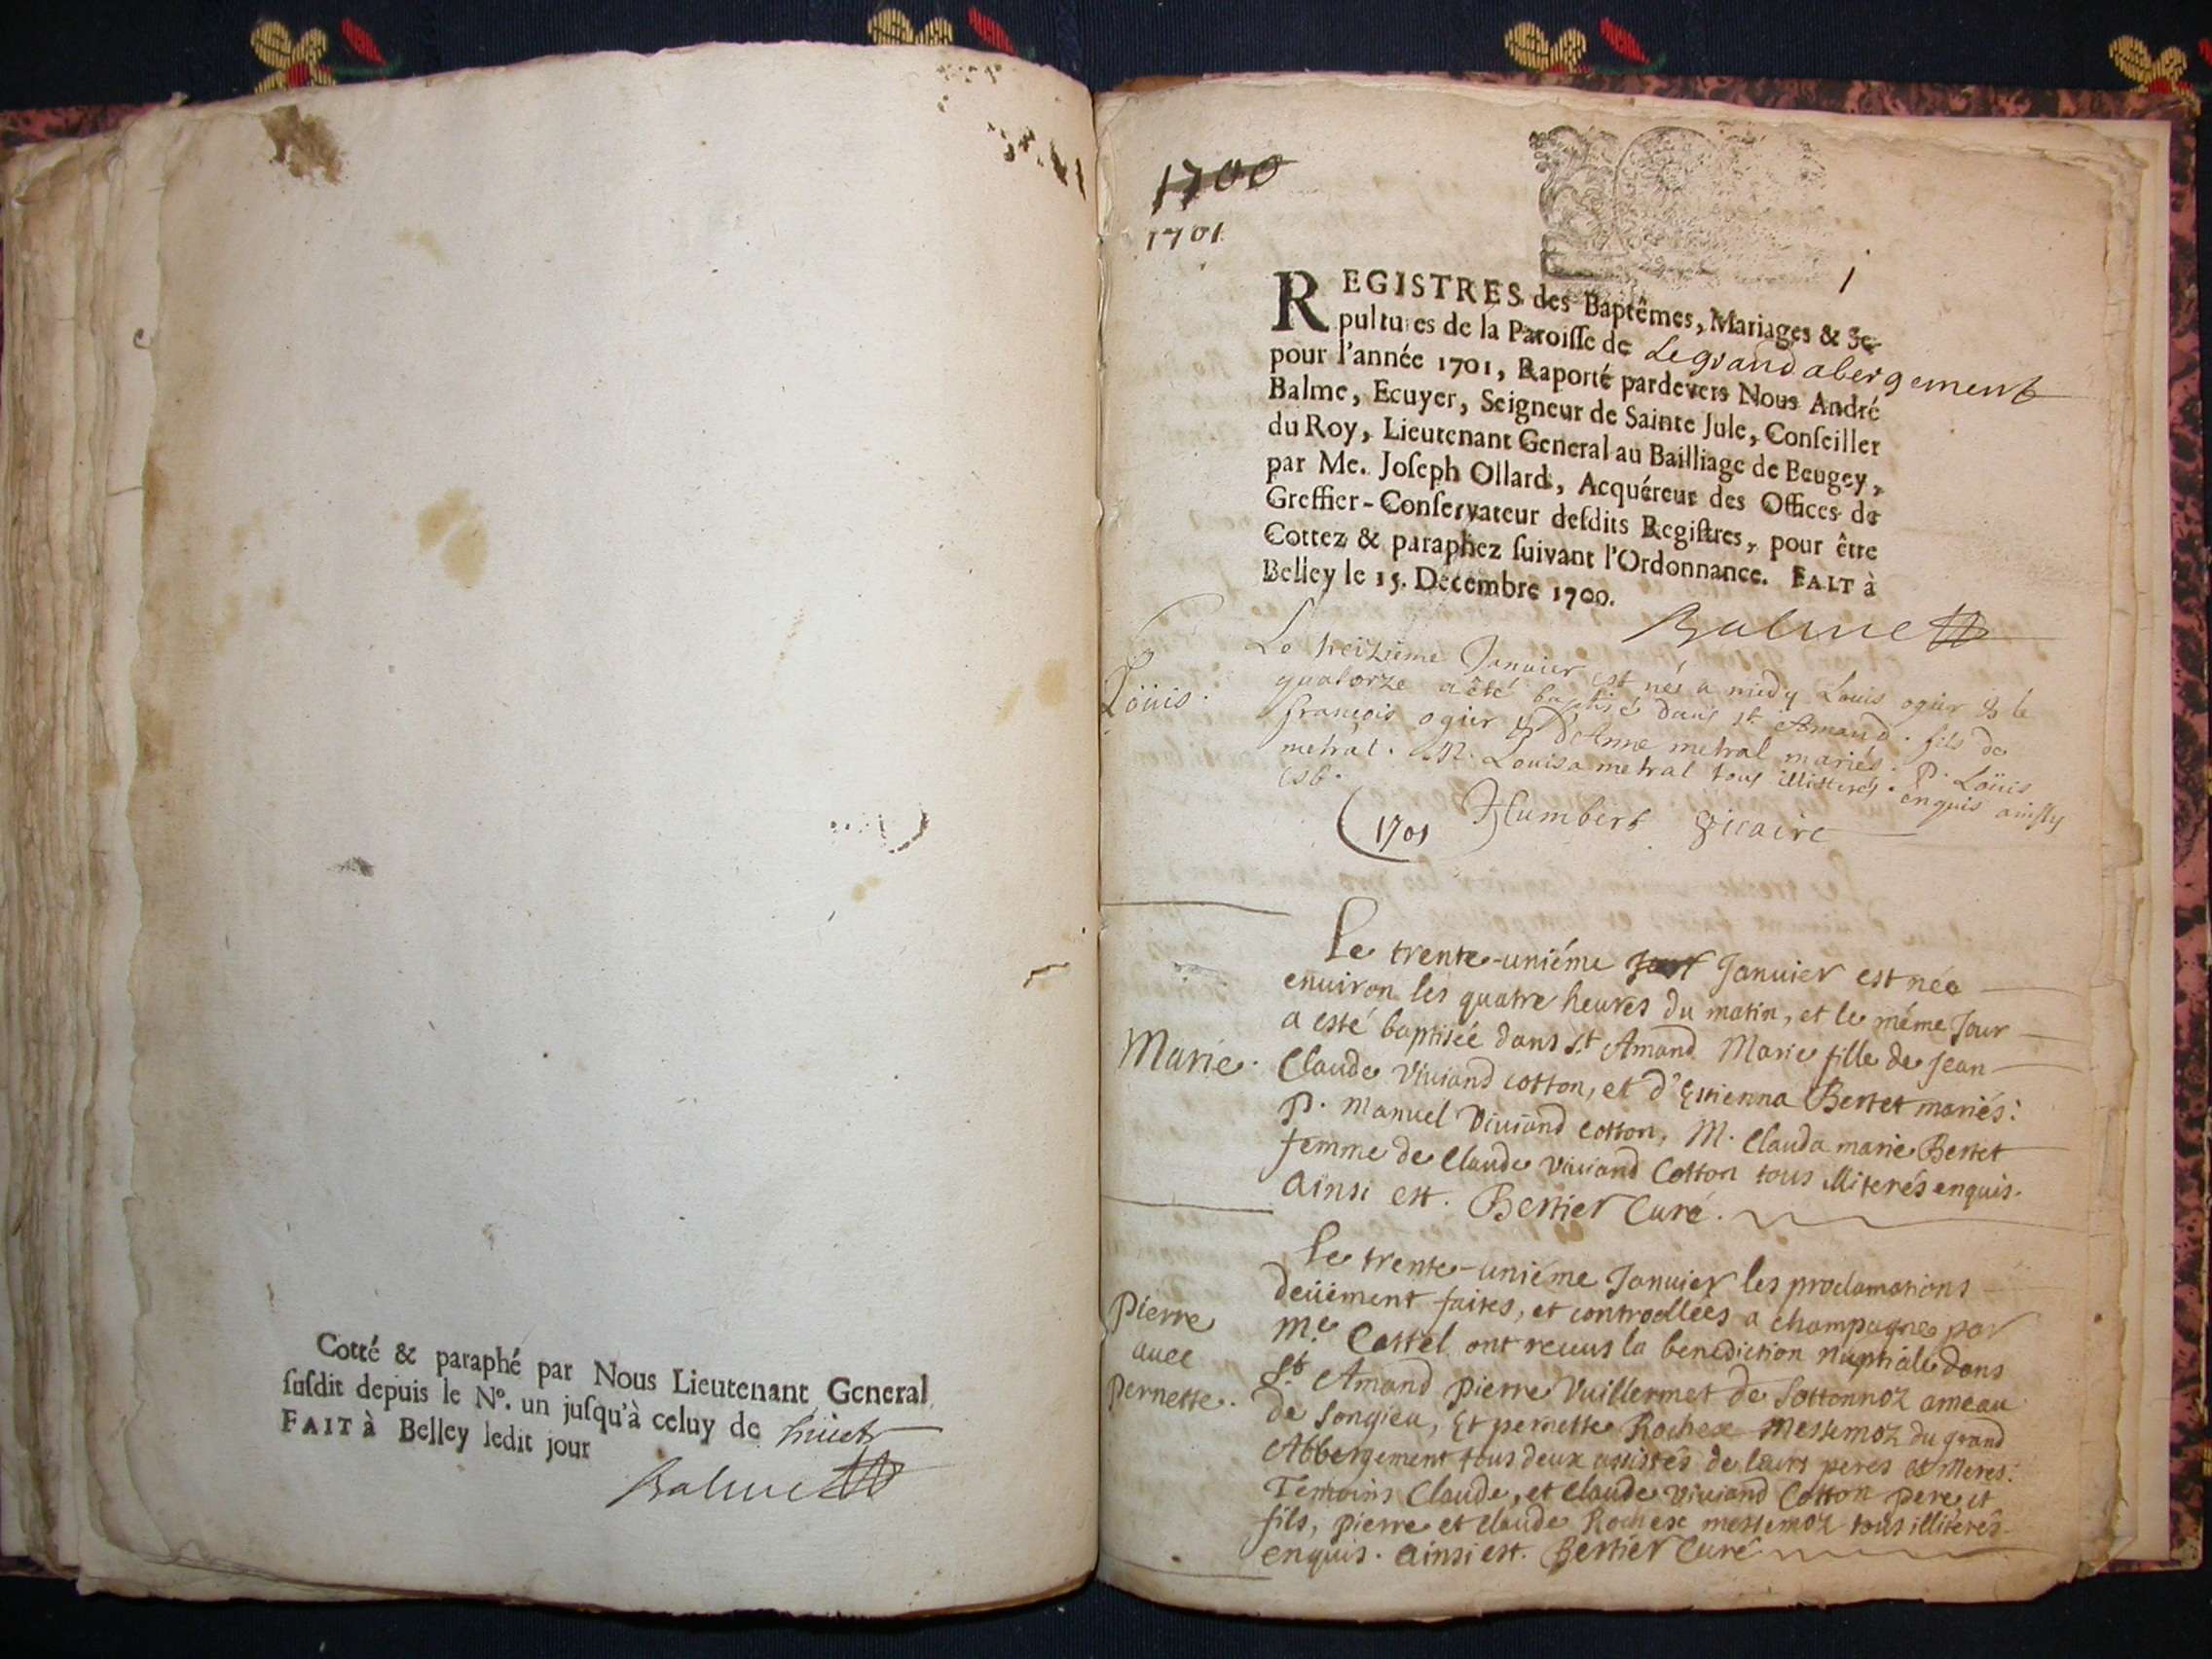 Cotté & paraphé par Nous Lieutenant General
ſuſdit depuis le Nº. un juſqu'à celuy de huict
FAIT à Belley ledit jour
Balme
1700
1701
1
REGISTRES des Baptêmes, Mariages & Se-
pultures de la Paroiſſe de Le grand abergement
pour l'année 1701, Raporté pardevers Nous André
Balme, Ecuyer, Seigneur de Sainte Jule, Conſeiller
du Roy, Lieutenant General au Bailliage de Beugey,
par Me. Joſeph Ollard, Acquéreur des Offices de
Greffier-Conſervateur deſdits Regiſtres, pour être
Cottez & paraphez ſuivant l'Ordonnance. FAIT à
Belley le 15. Decembre 1700.
Balme
Loüis.
Le treizieme Januier est né a midy Louis ogier & le
quatorze a êté baptisé dans st. Amand. fils de
françois ogier & d'Anne metral mariés. P. Loüis
metral. M. Louisa metral tous illiterés enquis ainsy
est.
1701 Humbert Vicaire
Marie.
Le trente-uniéme Januier est née
enuiron les quatre heures du matin, et le méme Jour
a esté baptisée dans St. Amand Marie fille de Jean
Claude Viuiand cotton, et d'Estienna Bertet mariés:
P. Manuel Viuiand cotton, M. Clauda marie Bertet
femme de Claude viuiand Cotton tous illiterés enquis.
Ainsi est. Bertier Curé.
Pierre
auec
Pernette.
Le trente-uniéme Januier les proclamations
deüement faites, et controllées a champagne par
Me. Costel ont receus la benediction nuptiale dans
St. Amand pierre Vuillermet de Sottonnoz ameau
de Songieu, Et pernette Rochex Mestemoz du grand
Abbergement tous deux assistés de leurs peres et Meres:
Temoins Claude, et Claude viuiand Cotton pere et
fils, pierre et claude Rochex mestemoz tous illiterés
enquis. ainsi est. Bertier Curé